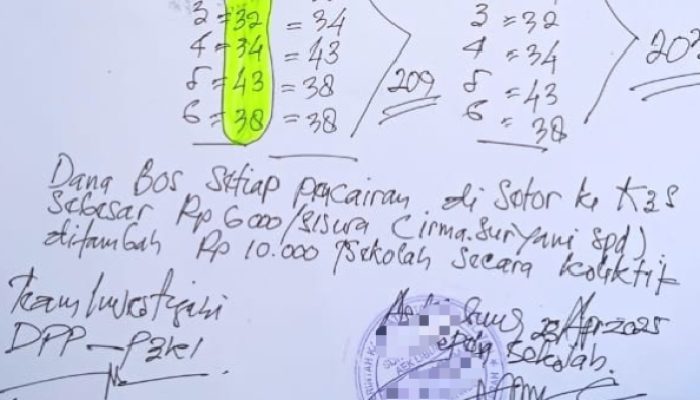 3 = 32 = 34 3 = 32
4 = 34 = 43 4 = 34
5 = 43 = 38 209 5 = 43 20
6 = 38 = 38 6 = 38
Dana Bos setiap pencairan di setor ke K3S
sebesar Rp 6000/siswa (irma.suryani Spd)
ditambah Rp 10.000/sekolah secara kolektif
Team Investigasi 23 Apr 2025
DPP - P2KI sekolah.